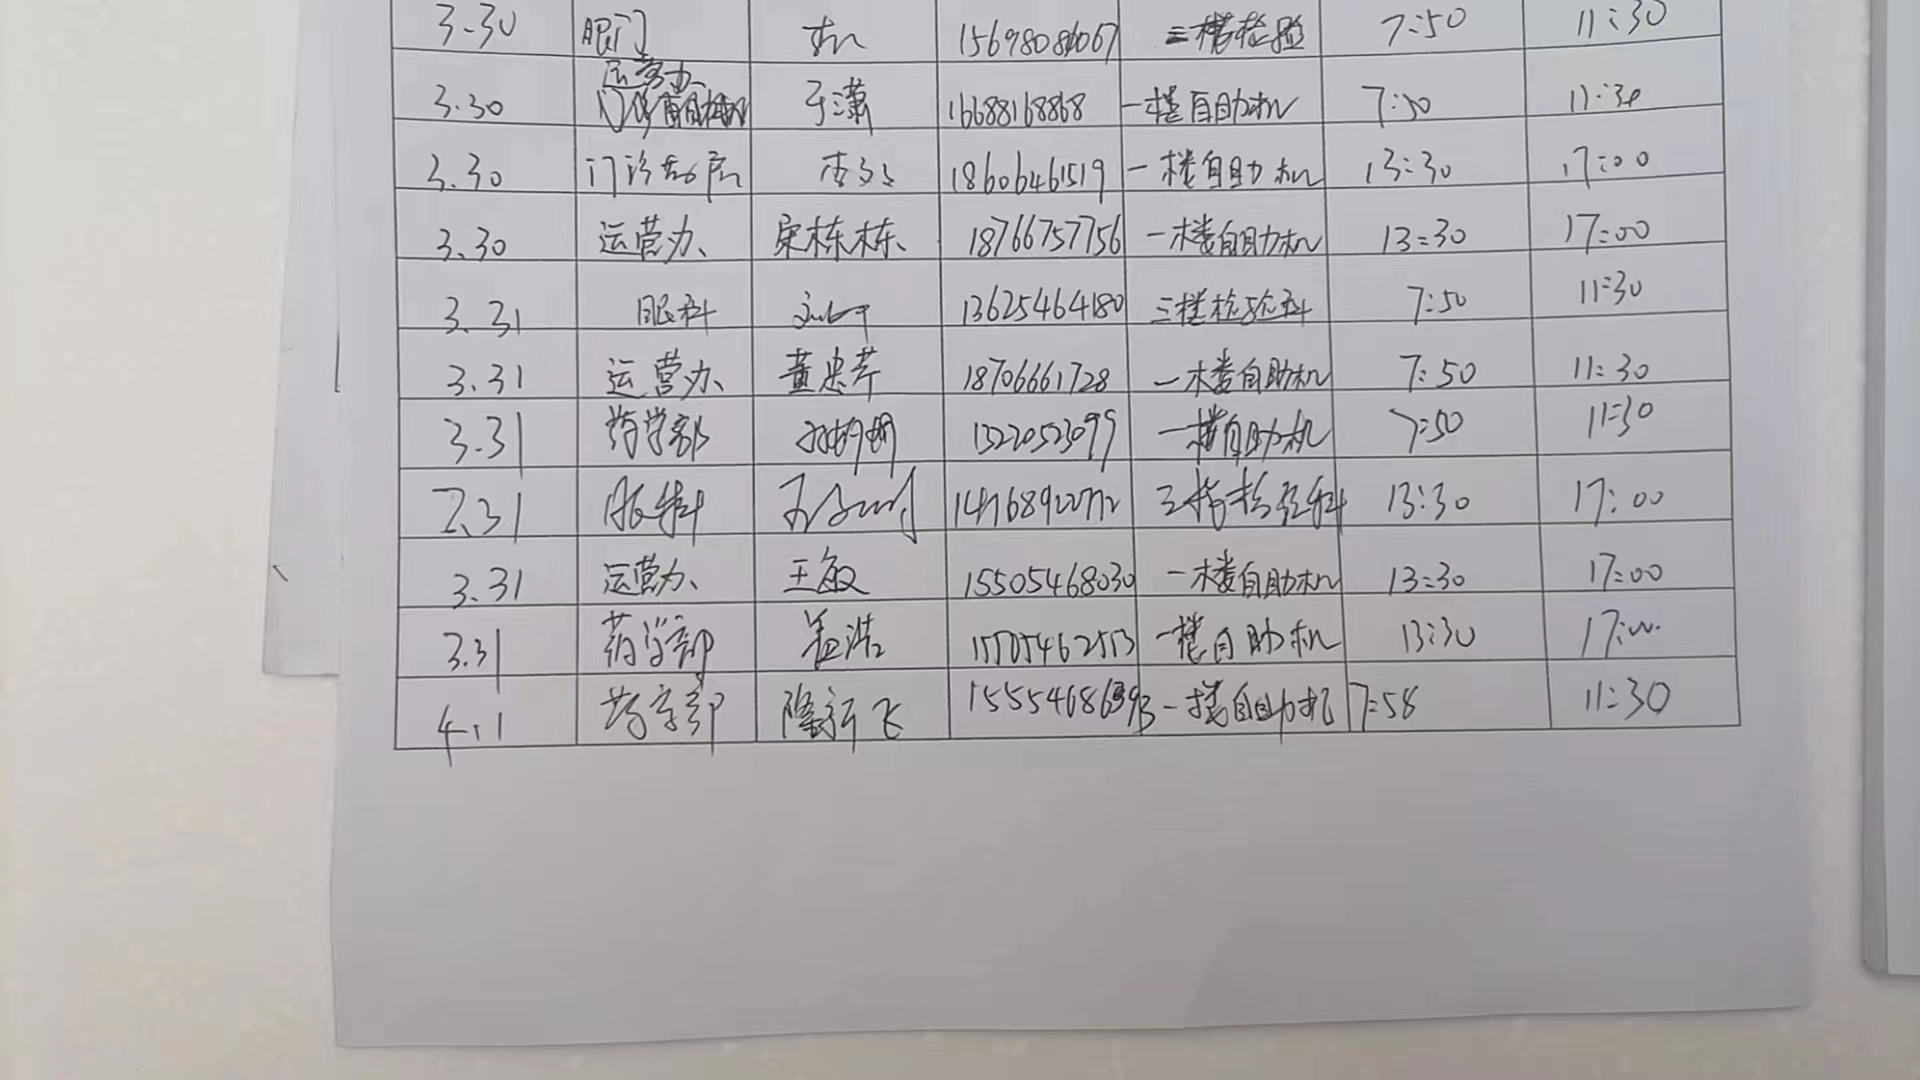 3.30 眼门 三楼检验 7:50 11:30
3.30 运营办 于潇 16688168868 一楼自助机 7:50 11:30
3.30 门诊药房 18606461519 一楼自助机 13:30 17:00
3.30 运营办 宋栋栋 18766757756 一楼自助机 13:30 17:00
3.31 眼科 13625464180 三楼检验科 7:50 11:30
3.31 运营办 董忠芹 18706661728 一楼自助机 7:50 11:30
3.31 药学部 13220523099 一楼自助机 7:50 11:30
3.31 眼科 三楼检验科 13:30 17:00
3.31 运营办 王敏 15505468030 一楼自助机 13:30 17:00
3.31 药学部 孟浩 15505462553 一楼自助机 13:30 17:00
4.1 药学部 隆新飞 一楼自助机 7:58 11:30